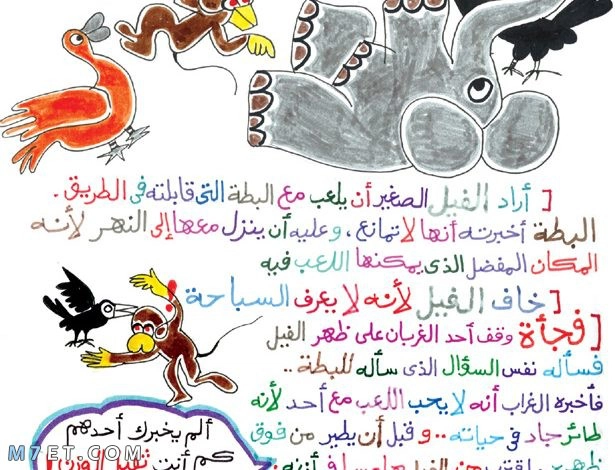 [ أراد الفيل الصغير أن يلعب مع البطة التى قابلته فى الطريق .
البطة أخبرته أنها لا تمانع ، وعليه أن ينزل معها إلى النهر لأنه
المكان المفضل الذى يمكنها اللعب فيه
[ خاف الفيل لأنه لا يعرف السباحة
[ فجأة وقف أحد الغربان على ظهر الفيل
فسأله نفس السؤال الذى سأله للبطة ..
فأخبره الغراب أنه لا يحب اللعب مع أحد لأنه
طائر جاد فى حياته .. و قبل أن يطير من فوق
ألم يخبرك أحدهم
كم أنت ثقيل الوزن
M7ET.COM